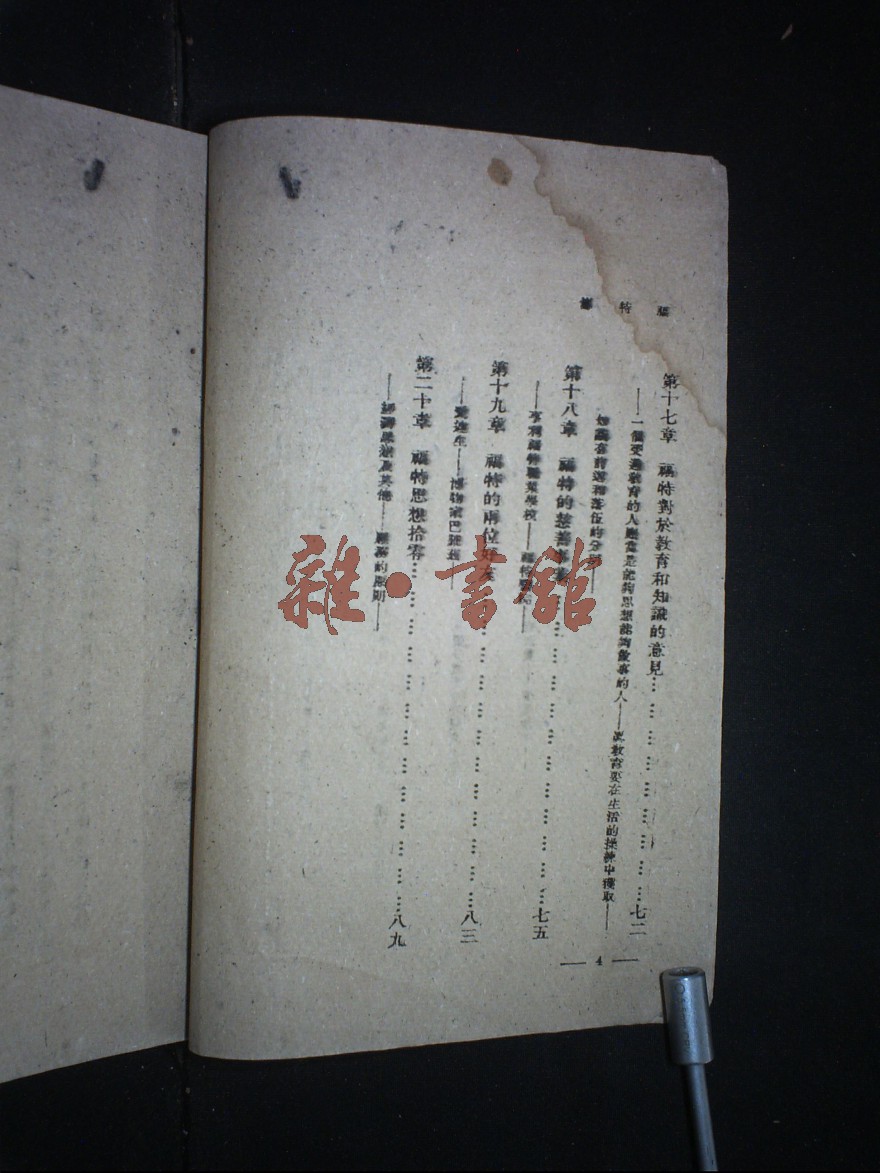 福特傳
第十七章 福特對於教育和知識的意見……七二
——一個受過教育的人應當是能夠思想能夠做事的人——眞教育要在生活的操練中獲取——
知識在前進和落伍的分別——
第十八章 福特的慈善事業……七五
——亨利福特職業學校——福特醫院——
第十九章 福特的兩位好友……八三
——愛迪生——博物家巴
第二十章 福特思想拾零……八九
及其他——服務的原則——
— 4 —
雜·書館